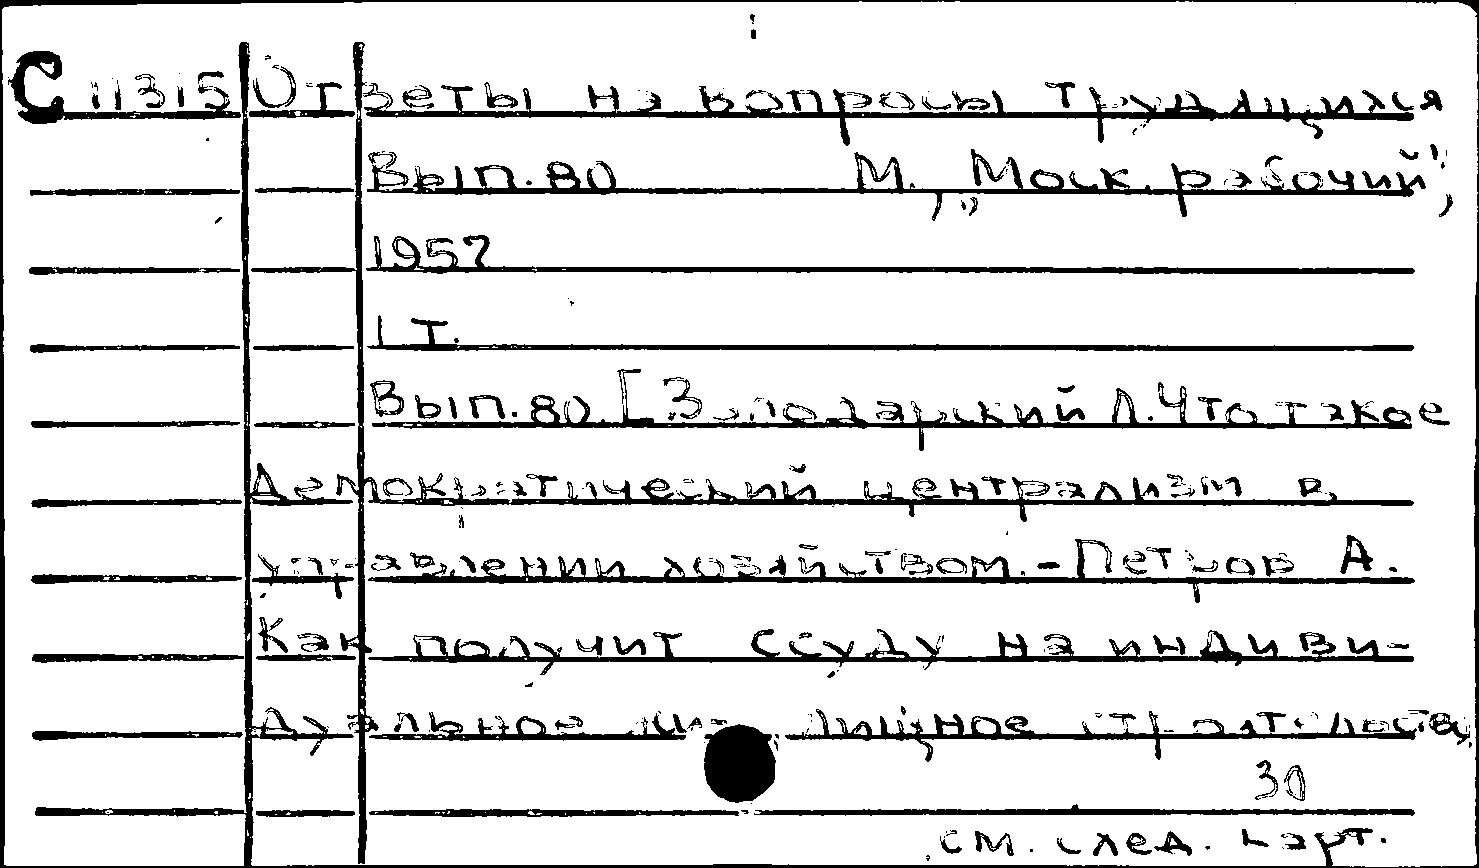 С 11315 Ответы на вопросы трудящихся
Вып. 80 М., „Моск. рабочий",
1957
1 т.
Вып. 80. [Володарский Л. Что такое
демократический централизм в
управлении хозяйством. - Петров А.
Как получит ссуду на индиви-
дуальное жилищное строительство
30
см. след. карт.